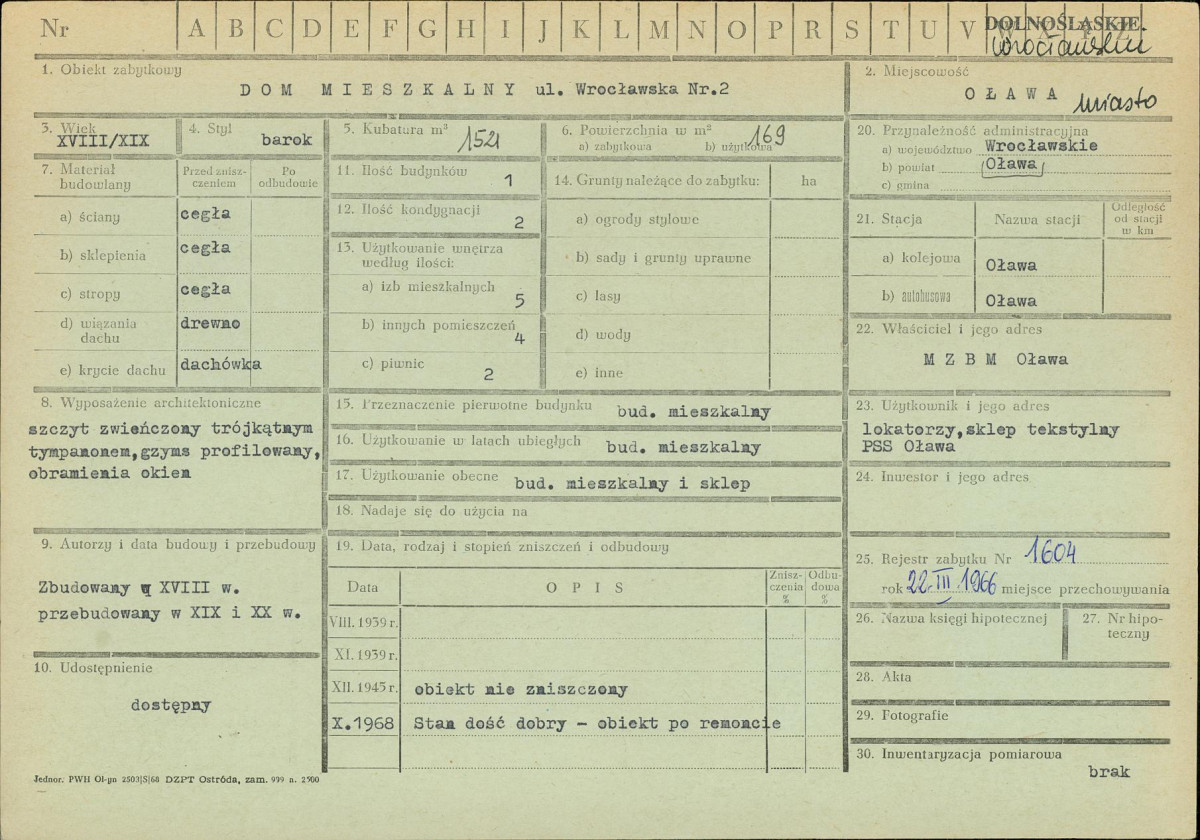 Nr A B C D E F G H I J K L M N O P R S T U V W X Y Z
DOLNOŚLĄSKIE
Wrocławskie
1. Obiekt zabytkowy
DOM MIESZKALNY ul. Wrocławska Nr.2
2. Miejscowość
OŁAWA miasto
3. Wiek
XVIII/XIX
4. Styl
barok
5. Kubatura m³
1521
6. Powierzchnia w m²
169
a) zabytkowa b) użytkowa
7. Materiał budowlany
Przed zniszczeniem
Po odbudowie
a) ściany cegła
b) sklepienia cegła
c) stropy cegła
d) wiązania dachu drewno
e) krycie dachu dachówka
8. Wyposażenie architektoniczne
szczyt zwieńczony trójkątnym
tympanonem,gzyms profilowany,
obramienia okien
9. Autorzy i data budowy i przebudowy
Zbudowany w XVIII w.
przebudowany w XIX i XX w.
10. Udostępnienie
dostępny
Jednor. PWH Ol-yn 2503|S|68 DZPT Ostróda, zam. 999 n. 2500
11. Ilość budynków 1
12. Ilość kondygnacji 2
13. Użytkowanie wnętrza
według ilości:
a) izb mieszkalnych 5
b) innych pomieszczeń 4
c) piwnic 2
14. Grunty należące do zabytku: ha
a) ogrody stylowe
b) sady i grunty uprawne
c) lasy
d) wody
e) inne
15. Przeznaczenie pierwotne budynku bud. mieszkalny
16. Użytkowanie w latach ubiegłych bud. mieszkalny
17. Użytkowanie obecne bud. mieszkalny i sklep
18. Nadaje się do użycia na
19. Data, rodzaj i stopień zniszczeń i odbudowy
Data OPIS Zniszczenia % Odbudowa %
VIII. 1939 r.
XI. 1939 r.
XII. 1945 r. obiekt nie zniszczony
X.1968 Stan dość dobry - obiekt po remoncie
20. Przynależność administracyjna
a) województwo Wrocławskie
b) powiat Oława
c) gmina
21. Stacja Nazwa stacji Odległość od stacji w km
a) kolejowa Oława
b) autobusowa Oława
22. Właściciel i jego adres
MZBM Oława
23. Użytkownik i jego adres
lokatorzy,sklep tekstylny
PSS Oława
24. Inwestor i jego adres
25. Rejestr zabytku Nr 1604
rok 22.III.1966 miejsce przechowywania
26. Nazwa księgi hipotecznej
27. Nr hipoteczny
28. Akta
29. Fotografie
30. Inwentaryzacja pomiarowa
brak